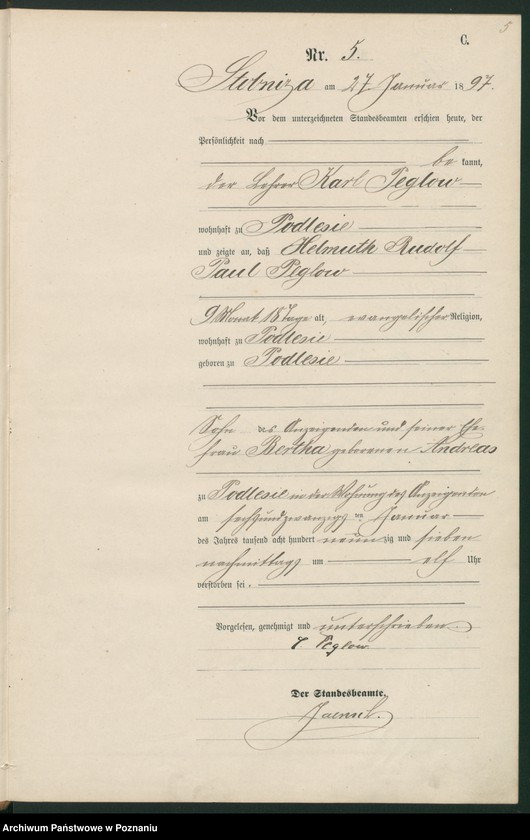 5
C.
Nr. 5.
Stobniza am 27 Januar 1897.
Vor dem unterzeichneten Standesbeamten erschien heute, der
Persönlichkeit nach
be kannt,
der Lehrer Karl Peglow
wohnhaft zu Podlesie
und zeigte an, daß Helmuth Rudolf
Paul Peglow
9 Monat 18 Tage alt, evangelischer Religion,
wohnhaft zu Podlesie
geboren zu Podlesie
Sohn des Anzeigenden und seiner Ehe-
frau Bertha geborenen Andreas
zu Podlesie in der Wohnung des Anzeigenden
am sechsundzwanzigsten Januar
des Jahres tausend acht hundert neun zig und sieben
nachmittags um elf Uhr
verstorben sei.
Vorgelesen, genehmigt und unterschrieben
Peglow
Der Standesbeamte.
Archiwum Państwowe w Poznaniu